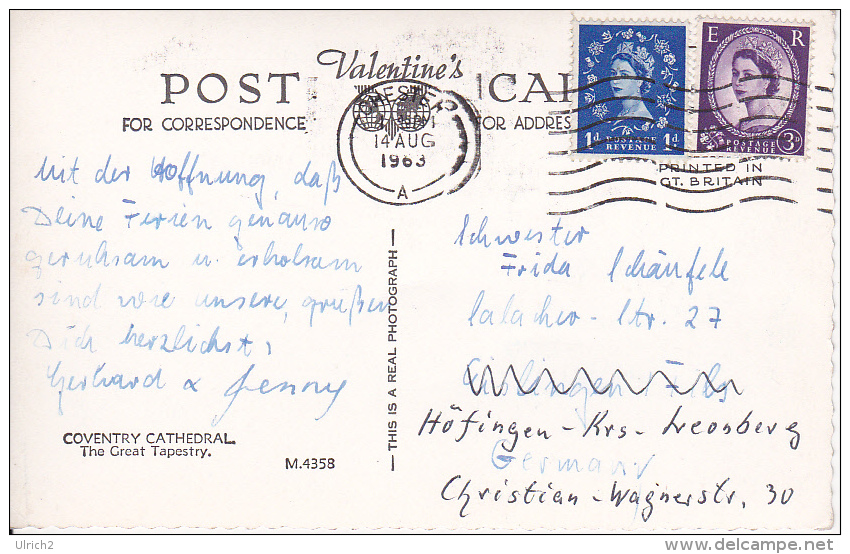 Valentine's
POST CAR
FOR CORRESPONDENCE
FOR ADDRES
CHESTER
14 AUG
1963
A
1d POSTAGE REVENUE 1d
E R
POSTAGE REVENUE 3d
PRINTED IN
GT. BRITAIN
Mit der Hoffnung, daß
Deine Ferien genauso
geruhsam u. erholsam
sind wie unsere, grüßen
Dich herzlichst,
Gerhard & Jenny
COVENTRY CATHEDRAL.
The Great Tapestry.
M.4358
THIS IS A REAL PHOTOGRAPH
Schwester
Frida Schäufele
Salacher-Str. 27
Eislingen / Fils
Höfingen-Krs-Leonberg
Germany
Christian-Wagnerstr. 30
Ulrich2
delcampe.net